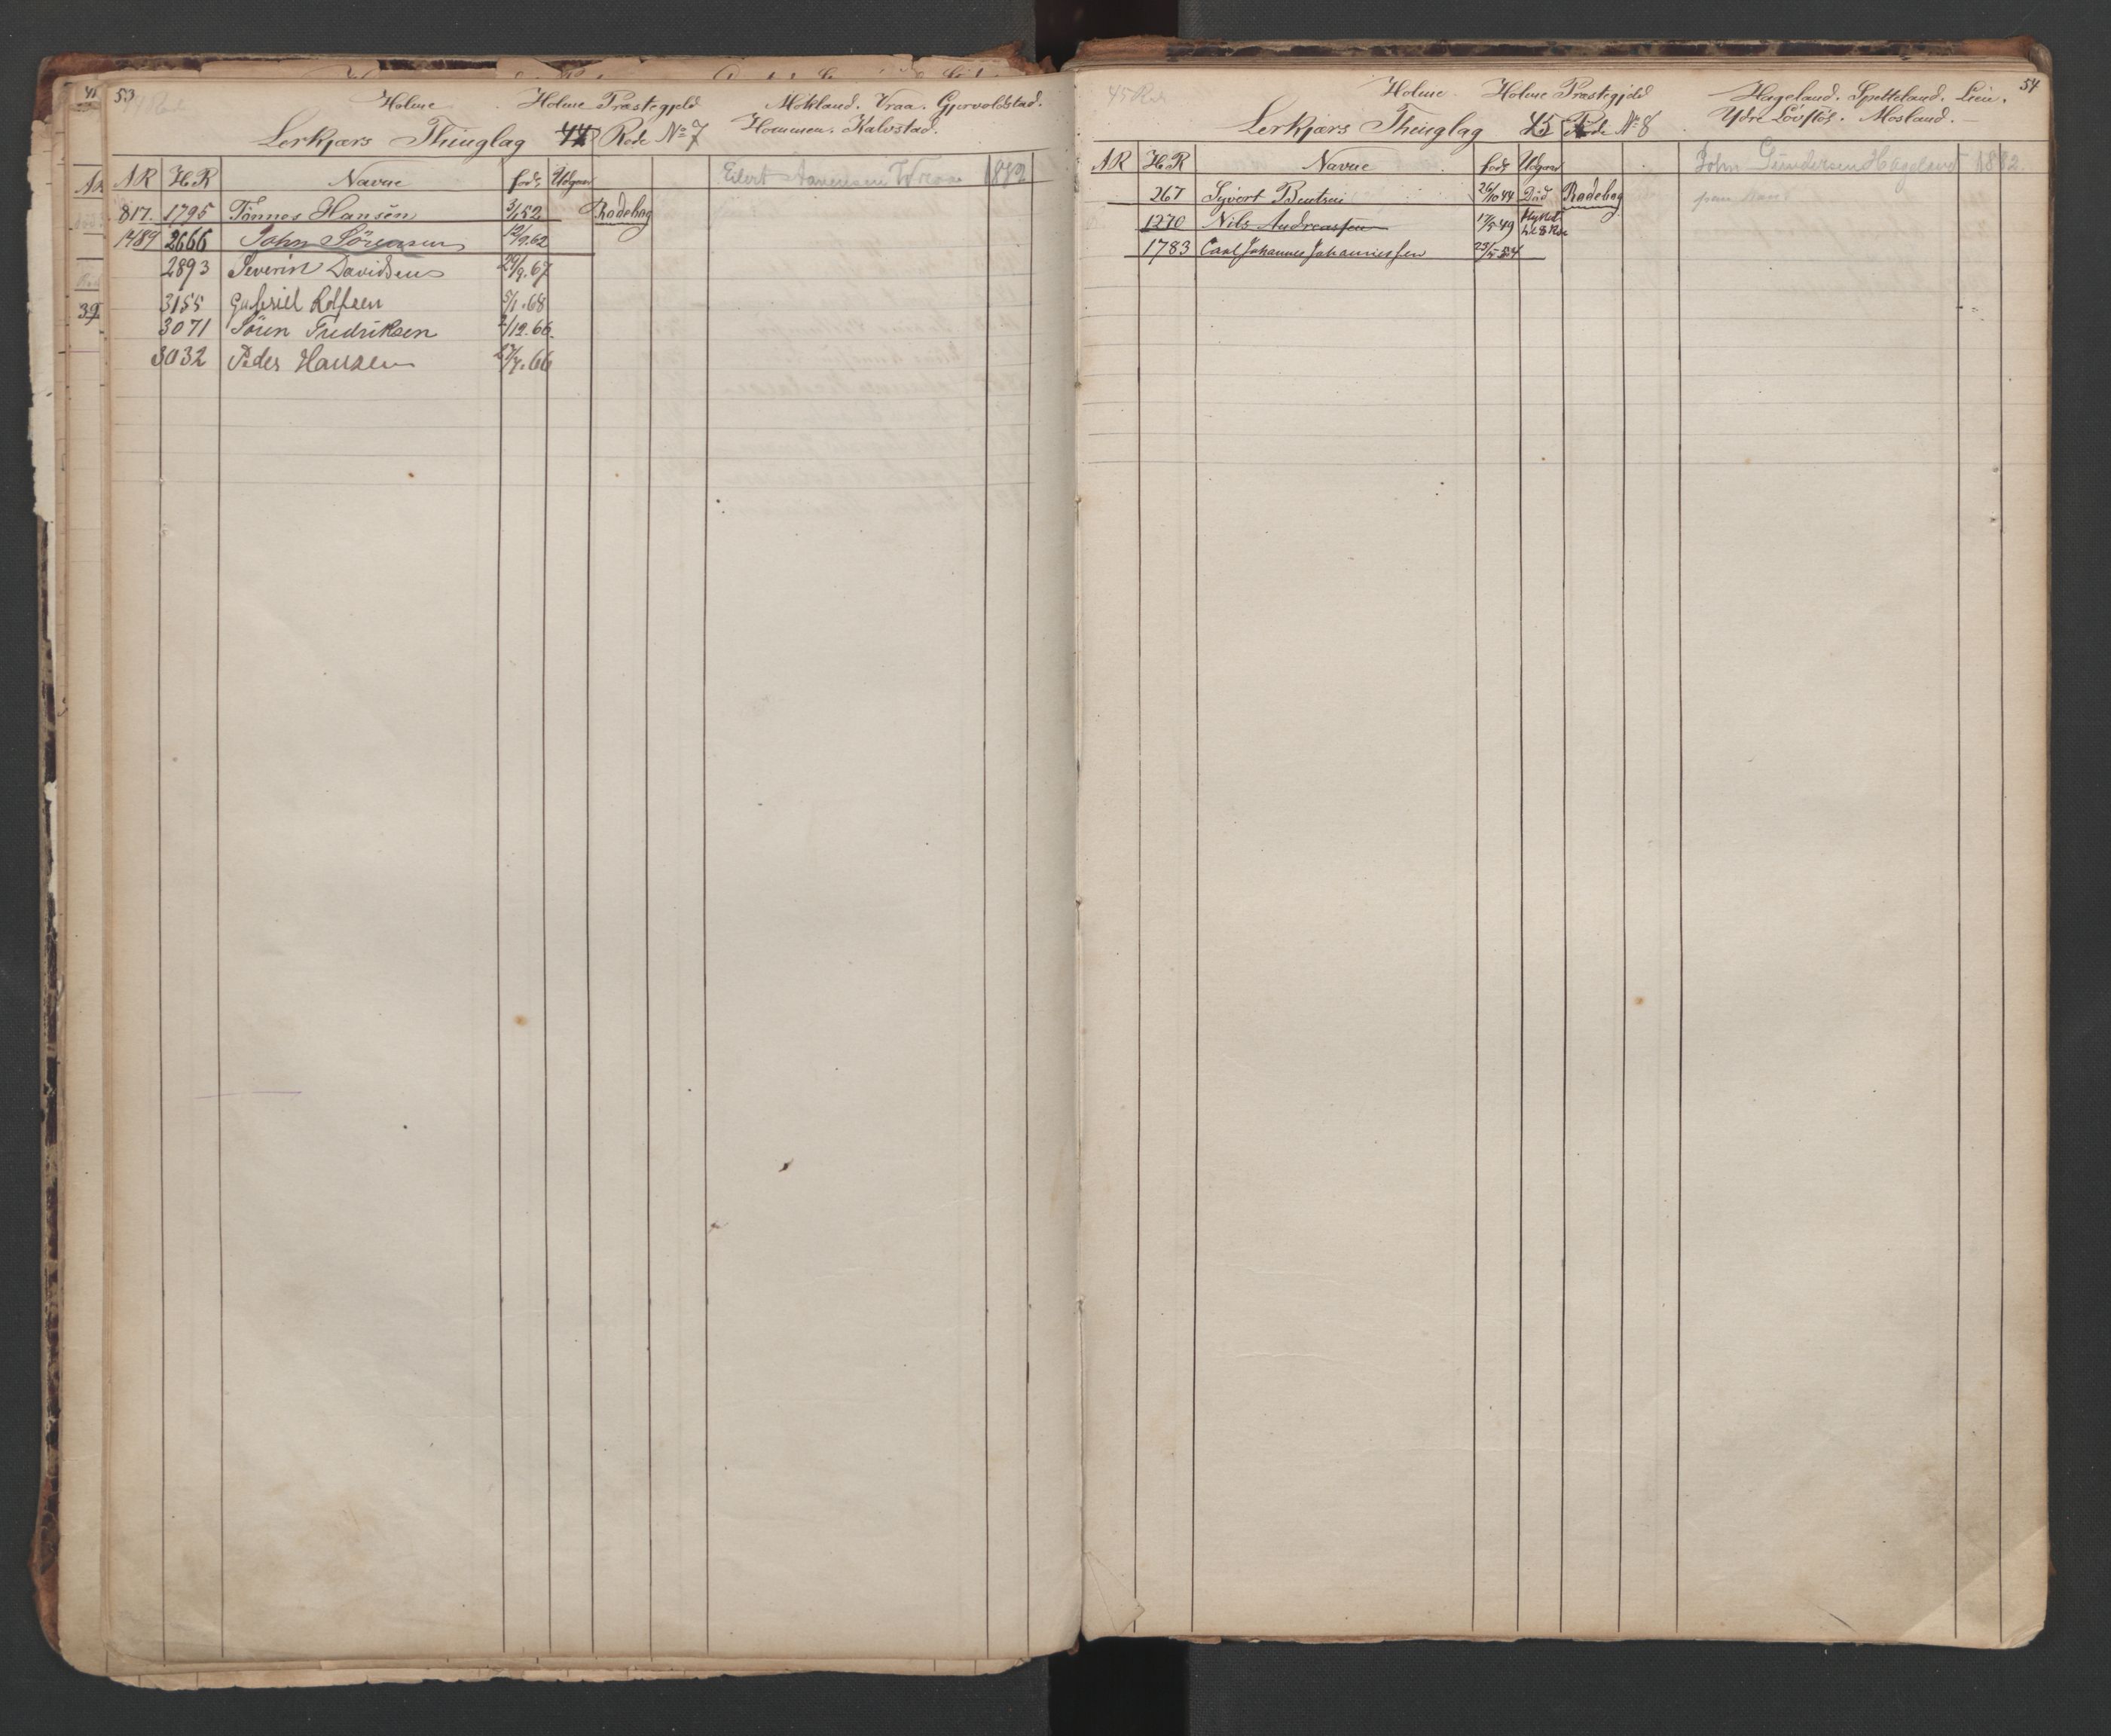 53
Holme Holme Præstegjeld
Lerkjærs Thinglag 44 Rode No 7
Mckland. Vraa. Gjervoldstad.
Hommen. Kalvstad.
AR HR Navne föd Udgaar
Eilert Aanensen Wraa 1882
817. 1795 Tönnes Hansen 3/1 52 Rodebog
1489 2666 John Sörensen 12/9.62
2893 Severin Davidsen 29/9.67
3155 Gabriel Rolfsen 5/1.68
3071 Sören Fredriksen 2/12.66
3032 Peder Hansen 27/7.66
39
45 Rode
54
Holme Holme Præstegjeld
Lerkjærs Thinglag 45 Rode No 8
Hageland. Spetteland. Lien.
Ydre Lövstös. Mosland.
AR HR Navne föd Udgaar
John Gundersen Hageland 1882.
267 Syvert Bentsen 26/10 44 Död Rodebog
1270 Nils Andreassen 17/5 49 flyttet til 8 Rode
1783 Carl Johannes Johannessen 23/5 54